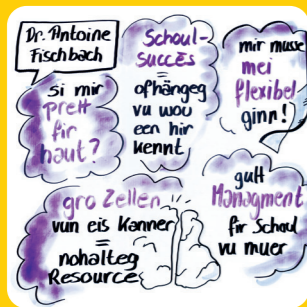 Dr. Antoine
Fischbach
si mir
prett
fir
haut?
Schoul-
succès
=
ofhängeg
vu wou
een hir
kennt
mir musse
mei
flexibel
ginn!
gro Zellen
vun eis Kanner
=
nohalteg
Resource
gutt
Managment
fir Schoul
vu muer